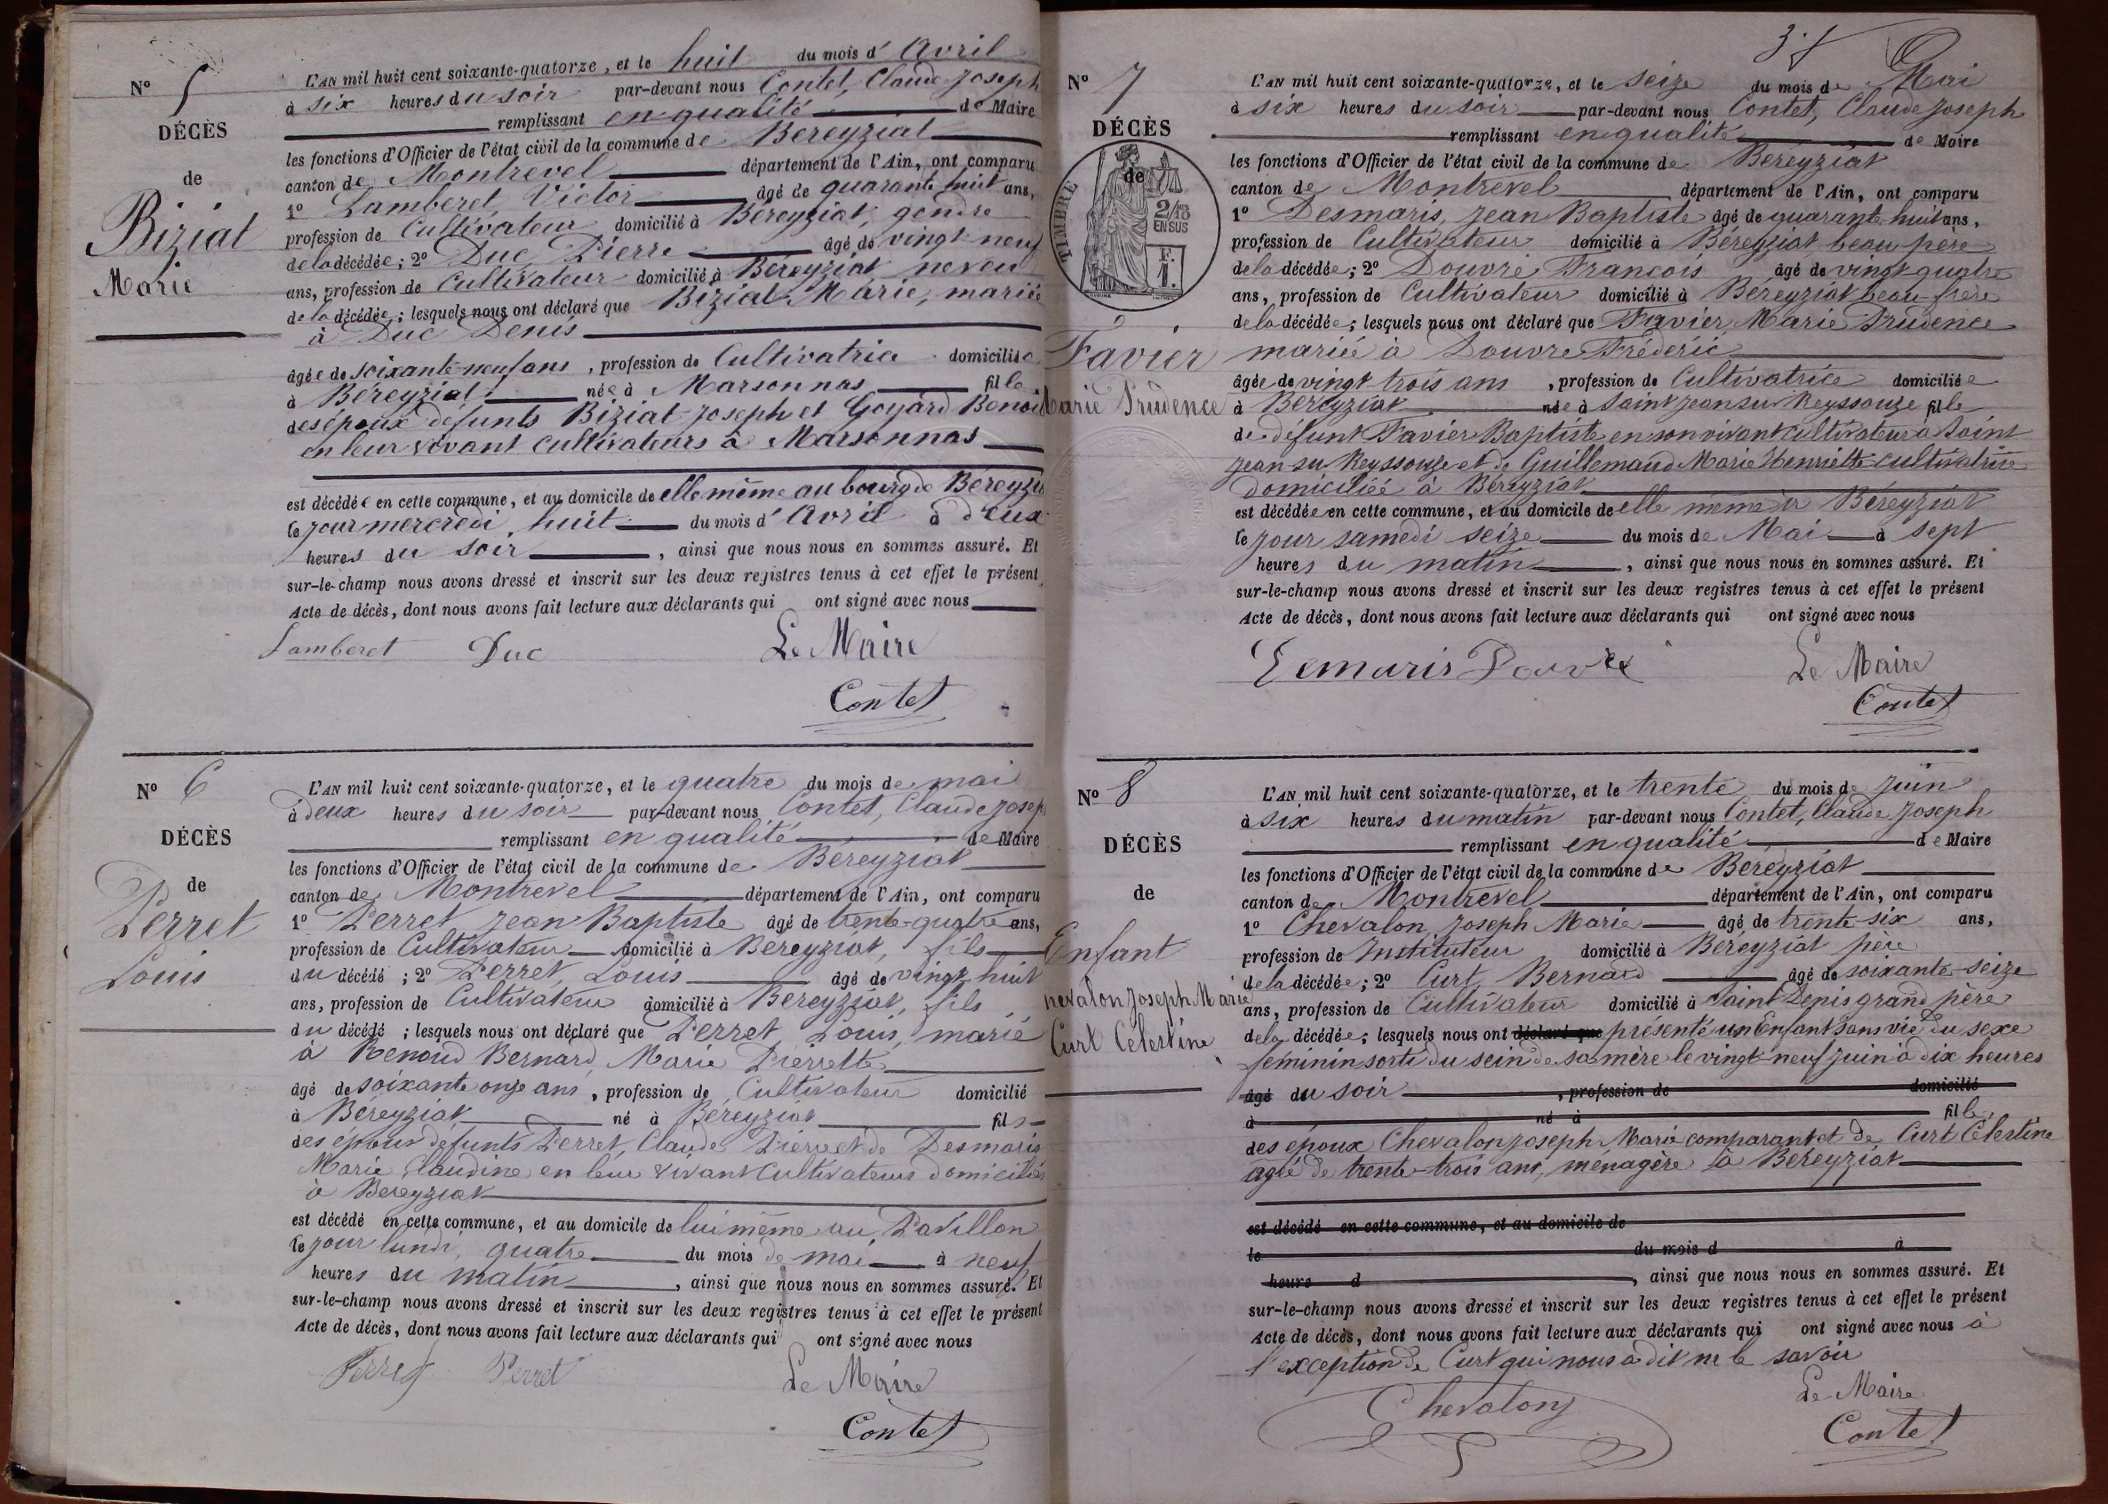 N° 5
DÉCÈS
de
Biziat
Marie
L'AN mil huit cent soixante-quatorze, et le huit du mois d'Avril
à six heures du soir par-devant nous Contet, Claude Joseph
remplissant en qualité de Maire
les fonctions d'Officier de l'état civil de la commune de Béreyziat
canton de Montrevel département de l'Ain, ont comparu
1° Lamberet, Victor âgé de quarante huit ans,
profession de Cultivateur domicilié à Béreyziat, gendre
de la décédée; 2° Duc Pierre âgé de vingt neuf
ans, profession de Cultivateur domicilié à Béreyziat neveu
de la décédée; lesquels nous ont déclaré que Biziat Marie, mariée
à Duc Denis
âgée de soixante-neuf ans, profession de Cultivatrice domiciliée
à Béreyziat née à Marsonnas fille
des époux défunts Biziat Joseph et Goyard Benoi
en leur vivant cultivateurs à Marsonnas
est décédée en cette commune, et au domicile de elle même au bourg de Béreyzi
le jour mercredi huit du mois d'Avril à deux
heures du soir, ainsi que nous nous en sommes assuré. Et
sur-le-champ nous avons dressé et inscrit sur les deux registres tenus à cet effet le présent
Acte de décès, dont nous avons fait lecture aux déclarants qui ont signé avec nous
Lamberet Duc Le Maire
Contet
N° 6
DÉCÈS
de
Perret
Louis
L'AN mil huit cent soixante-quatorze, et le quatre du mois de mai
à deux heures du soir par-devant nous Contet, Claude Josep
remplissant en qualité de Maire
les fonctions d'Officier de l'état civil de la commune de Béreyziat
canton de Montrevel département de l'Ain, ont comparu
1° Perret Jean Baptiste âgé de trente-quatre ans,
profession de Cultivateur domicilié à Béreyziat, fils
du décédé; 2° Perret, Louis âgé de vingt huit
ans, profession de Cultivateur domicilié à Béreyziat, fils
du décédé; lesquels nous ont déclaré que Perret Louis, marié
à Renoud Bernard, Marie Pierrette
âgé de soixante onze ans, profession de Cultivateur domicilié
à Béreyziat né à Béreyziat fils
des époux défunts Perret, Claude Pierre et de Desmaris
Marie Claudine en leur vivant Cultivateurs domiciliés
à Béreyziat
est décédé en cette commune, et au domicile de lui même au Pavillon
le jour lundi, quatre du mois de mai à neuf
heures du matin, ainsi que nous nous en sommes assuré. Et
sur-le-champ nous avons dressé et inscrit sur les deux registres tenus à cet effet le présent
Acte de décès, dont nous avons fait lecture aux déclarants qui ont signé avec nous
Perret Perret Le Maire
Contet
N° 7
DÉCÈS
de
TIMBRE
2/10
EN SUS
F.
1.
Favier
Marie Prudence
L'AN mil huit cent soixante-quatorze, et le seize du mois de Mai
à six heures du soir par-devant nous Contet, Claude Joseph
remplissant en qualité de Maire
les fonctions d'Officier de l'état civil de la commune de Béréyziat
canton de Montrevel département de l'Ain, ont comparu
1° Desmaris, Jean Baptiste âgé de quarante huit ans,
profession de Cultivateur domicilié à Béreyziat beau père
de la décédée; 2° Douvre François âgé de vingt quatre
ans, profession de Cultivateur domicilié à Béreyziat beau-frère
de la décédée; lesquels nous ont déclaré que Favier, Marie Prudence
mariée à Douvre Fréderic
âgée de vingt trois ans, profession de Cultivatrice domiciliée
à Béreyziat née à Saint Jean su Reyssouze fille
de défunt Favier Baptiste en son vivant cultivateur à Saint
Jean su Reyssouze et de Guillemaud Marie Henriette cultivatrice
domiciliée à Béreyziat
est décédée en cette commune, et au domicile de elle même à Béreyziat
le jour samedi seize du mois de Mai à sept
heures du matin, ainsi que nous nous en sommes assuré. Et
sur-le-champ nous avons dressé et inscrit sur les deux registres tenus à cet effet le présent
Acte de décès, dont nous avons fait lecture aux déclarants qui ont signé avec nous
Demaris Douvre Le Maire
Contet
N° 8
DÉCÈS
de
Enfant
hevalon Joseph Marie
Curt Célestine
L'AN mil huit cent soixante-quatorze, et le trente du mois de juin
à six heures du matin par-devant nous Contet, Claude Joseph
remplissant en qualité de Maire
les fonctions d'Officier de l'état civil de la commune de Béréyziat
canton de Montrevel département de l'Ain, ont comparu
1° Chevalon, Joseph Marie âgé de trente-six ans,
profession de Instituteur domicilié à Béreyziat père
de la décédée; 2° Curt, Bernard âgé de soixante-seize
ans, profession de Cultivateur domicilié à Saint Denis grand père
de la décédée; lesquels nous ont déclaré que présenté un Enfant sans vie du sexe
féminin sorti du sein de sa mère le vingt-neuf juin à dix heures
âgé du soir, profession de domicilié
à né à fille
des époux Chevalon Joseph Marie comparant et de Curt Célestine
agée de trente-trois ans, ménagère à Béreyziat
est décédé en cette commune, et au domicile de
le du mois d à
heure d, ainsi que nous nous en sommes assuré. Et
sur-le-champ nous avons dressé et inscrit sur les deux registres tenus à cet effet le présent
Acte de décès, dont nous avons fait lecture aux déclarants qui ont signé avec nous à
l'exception de Curt qui nous a dit ne le savoir
Chevalon Le Maire
Contet